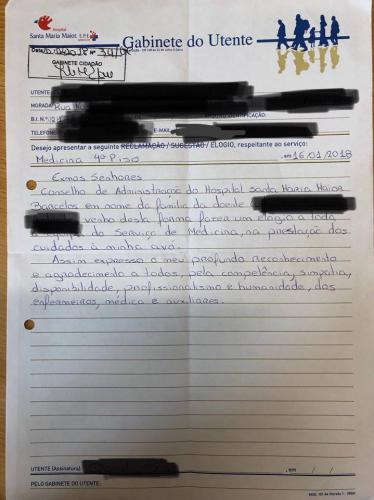 Hospital
Santa Maria Maior, E.P.E
Gabinete do Utente
Data
Nº
GABINETE CIDADÃO
UTENTE
MORADA Rua
IDENTIFICAÇÃO:
B.I. Nº
TELEFONE
E-MAIL
Desejo apresentar a seguinte RECLAMAÇÃO / SUGESTÃO / ELOGIO, respeitante ao serviço:
Medicina 4º Piso , em 16/01/2018
Exmos Senhores
Conselho de Administração do Hospital Santa Maria Maior
Barcelos em nome da família da doente
venho desta forma fazer um elogio a toda
a equipa do Serviço de Medicina, na prestação dos
cuidados à minha avó.
Assim expresso o meu profundo reconhecimento
e agradecimento a todos, pela competência, simpatia,
disponibilidade, profissionalismo e humanidade, dos
enfermeiros, médica e auxiliares.
UTENTE (Assinatura) , em / /
PELO GABINETE DO UTENTE: